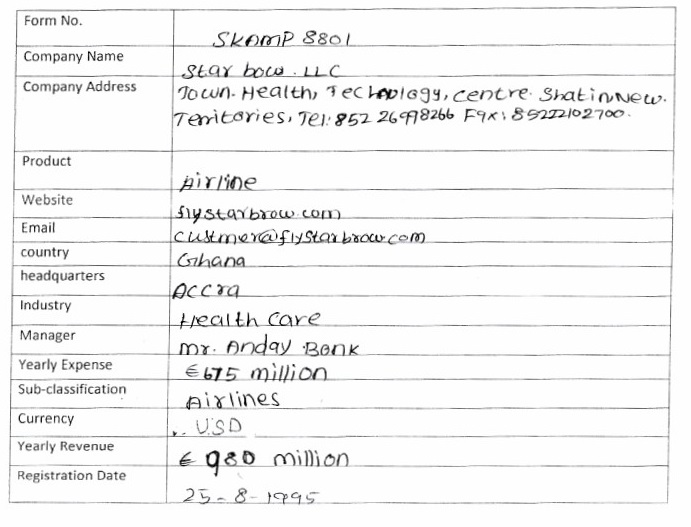 Form No.
SKAMP 8801
Company Name
Star bow. LLC
Company Address
Town. Health, Technology, centre. Shatin, New.
Territories, Tel: 852 26998266 Fax: 85222102700.
Product
Airline
Website
flystarbrow.com
Email
custmer@flystarbrow.com
country
Ghana
headquarters
Accra
Industry
Health care
Manager
mr. Anday Bonk
Yearly Expense
€ 675 million
Sub-classification
Airlines
Currency
USD
Yearly Revenue
€ 980 million
Registration Date
25-8-1995